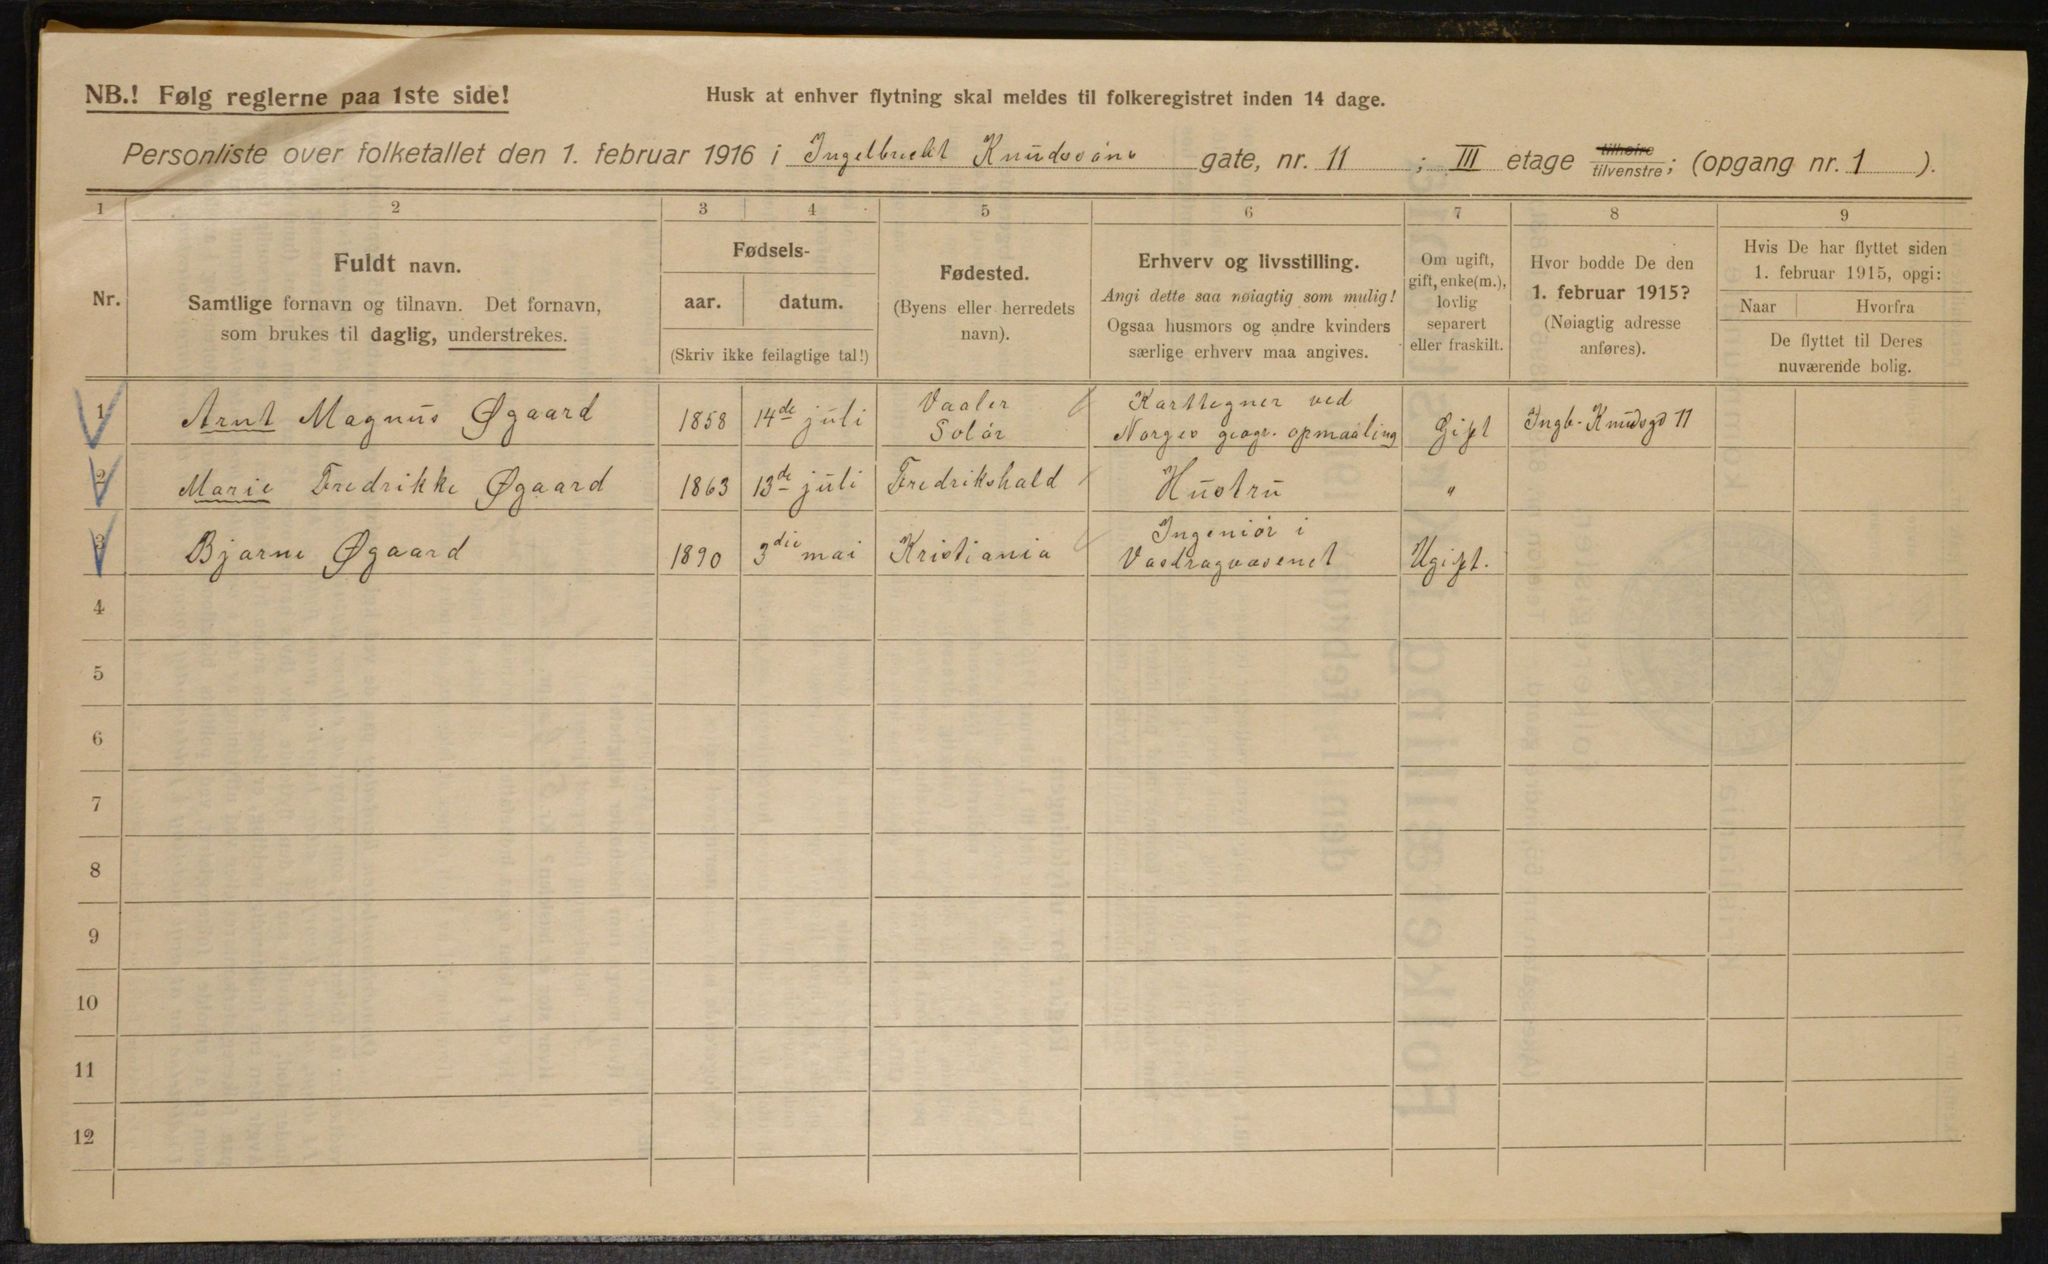 NB.! Følg reglerne paa 1ste side!
Husk at enhver flytning skal meldes til folkeregistret inden 14 dage.
Personliste over folketallet den 1. februar 1916 i Ingelbrecht Knudssøns gate, nr. 11 ; III etage tilhøire/tilvenstre; (opgang nr. 1 ).
1 2 3 4 5 6 7 8 9
Nr.
Fuldt navn.
Samtlige fornavn og tilnavn. Det fornavn,
som brukes til daglig, understrekes.
Fødsels-
aar. datum.
(Skriv ikke feilagtige tal!)
Fødested.
(Byens eller herredets
navn).
Erhverv og livsstilling.
Angi dette saa nøiagtig som mulig!
Ogsaa husmors og andre kvinders
særlige erhverv maa angives.
Om ugift,
gift, enke(m.),
lovlig
separert
eller fraskilt.
Hvor bodde De den
1. februar 1915?
(Nøiagtig adresse
anføres).
Hvis De har flyttet siden
1. februar 1915, opgi:
Naar Hvorfra
De flyttet til Deres
nuværende bolig.
1 Arnt Magnus Øgaard 1858 14de juli Vaaler
Solør
Karttegner ved
Norges geogr. opmaaling
Gift Ingb. Knudsgd 11
2 Marie Fredrikke Øgaard 1863 13de juli Fredrikshald Hustru "
3 Bjarne Øgaard 1890 3die mai Kristiania Ingeniør i
Vasdragvæsenet Ugift.
4
5
6
7
8
9
10
11
12